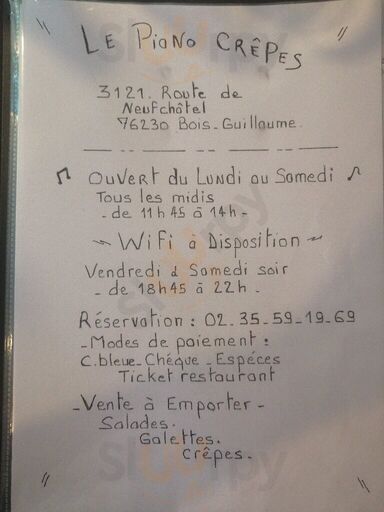 LE PIANO CRÊPES
3121. Route de
Neufchâtel
76230 Bois-Guillaume.
OUVERT du LUNDI au Samedi
Tous les midis
- de 11h45 à 14h -
~ WiFi à Disposition ~
Vendredi & Samedi soir
- de 18h45 à 22h -
Réservation : 02.35-59-19-69
- Modes de paiement :
C.bleue - Chéque - Espéces
Ticket restaurant
- Vente à Emporter -
Salades.
Galettes.
Crêpes.